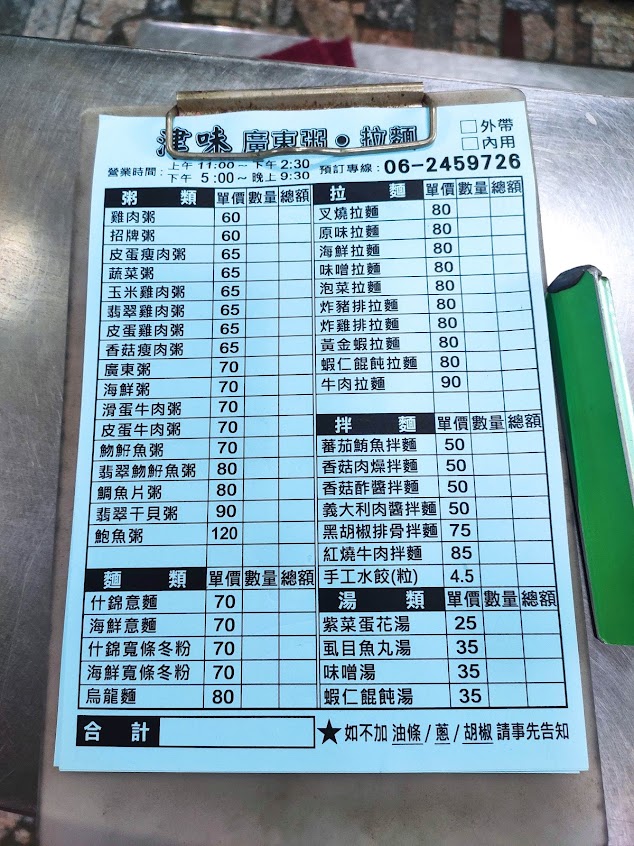 津味 廣東粥•拉麵
□外帶
□內用
營業時間：上午 11:00～下午 2:30
下午 5:00～晚上 9:30
預訂專線：06-2459726
粥類 單價 數量 總額
雞肉粥 60
招牌粥 60
皮蛋瘦肉粥 65
蔬菜粥 65
玉米雞肉粥 65
翡翠雞肉粥 65
皮蛋雞肉粥 65
香菇瘦肉粥 65
廣東粥 70
海鮮粥 70
滑蛋牛肉粥 70
皮蛋牛肉粥 70
魩魩魚粥 70
翡翠魩魩魚粥 80
鯛魚片粥 80
翡翠干貝粥 90
鮑魚粥 120
麵類 單價 數量 總額
什錦意麵 70
海鮮意麵 70
什錦寬條冬粉 70
海鮮寬條冬粉 70
烏龍麵 80
拉麵 單價 數量 總額
叉燒拉麵 80
原味拉麵 80
海鮮拉麵 80
味噌拉麵 80
泡菜拉麵 80
炸豬排拉麵 80
炸雞排拉麵 80
黃金蝦拉麵 80
蝦仁餛飩拉麵 80
牛肉拉麵 90
拌麵 單價 數量 總額
蕃茄鮪魚拌麵 50
香菇肉燥拌麵 50
香菇酢醬拌麵 50
義大利肉醬拌麵 50
黑胡椒排骨拌麵 75
紅燒牛肉拌麵 85
手工水餃(粒) 4.5
湯類 單價 數量 總額
紫菜蛋花湯 25
虱目魚丸湯 35
味噌湯 35
蝦仁餛飩湯 35
合計
★如不加 油條 / 蔥 / 胡椒 請事先告知